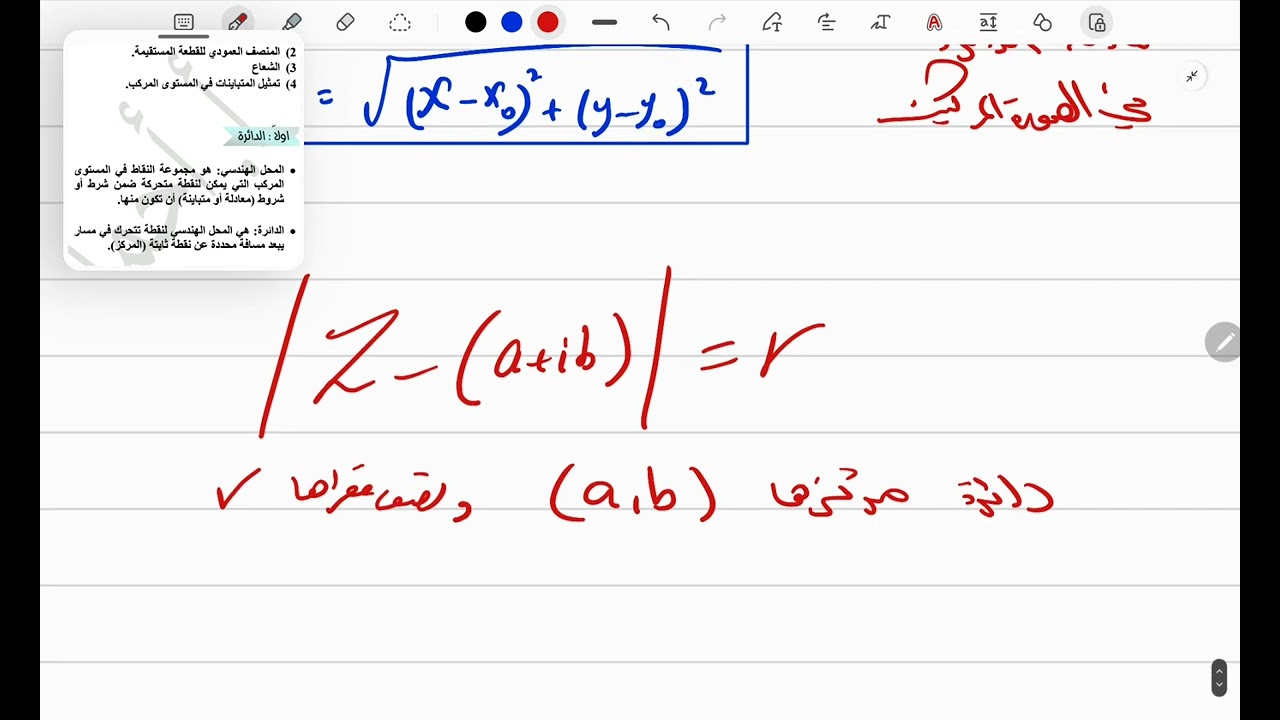 2) المنصف العمودي للقطعة المستقيمة.
3) الشعاع
4) تمثيل المتباينات في المستوى المركب.
اولاً: الدائرة
• المحل الهندسي: هو مجموعة النقاط في المستوى
المركب التي يمكن لنقطة متحركة ضمن شرط أو
شروط (معادلة أو متباينة) أن تكون منها.
• الدائرة: هي المحل الهندسي لنقطة تتحرك في مسار
يبعد مسافة محددة عن نقطة ثابتة (المركز).
= √(x-x₀)² + (y-y₀)²
في الصورة
|Z-(a+ib)| = r
دائرة مركزها (a,b) ونصف قطرها r